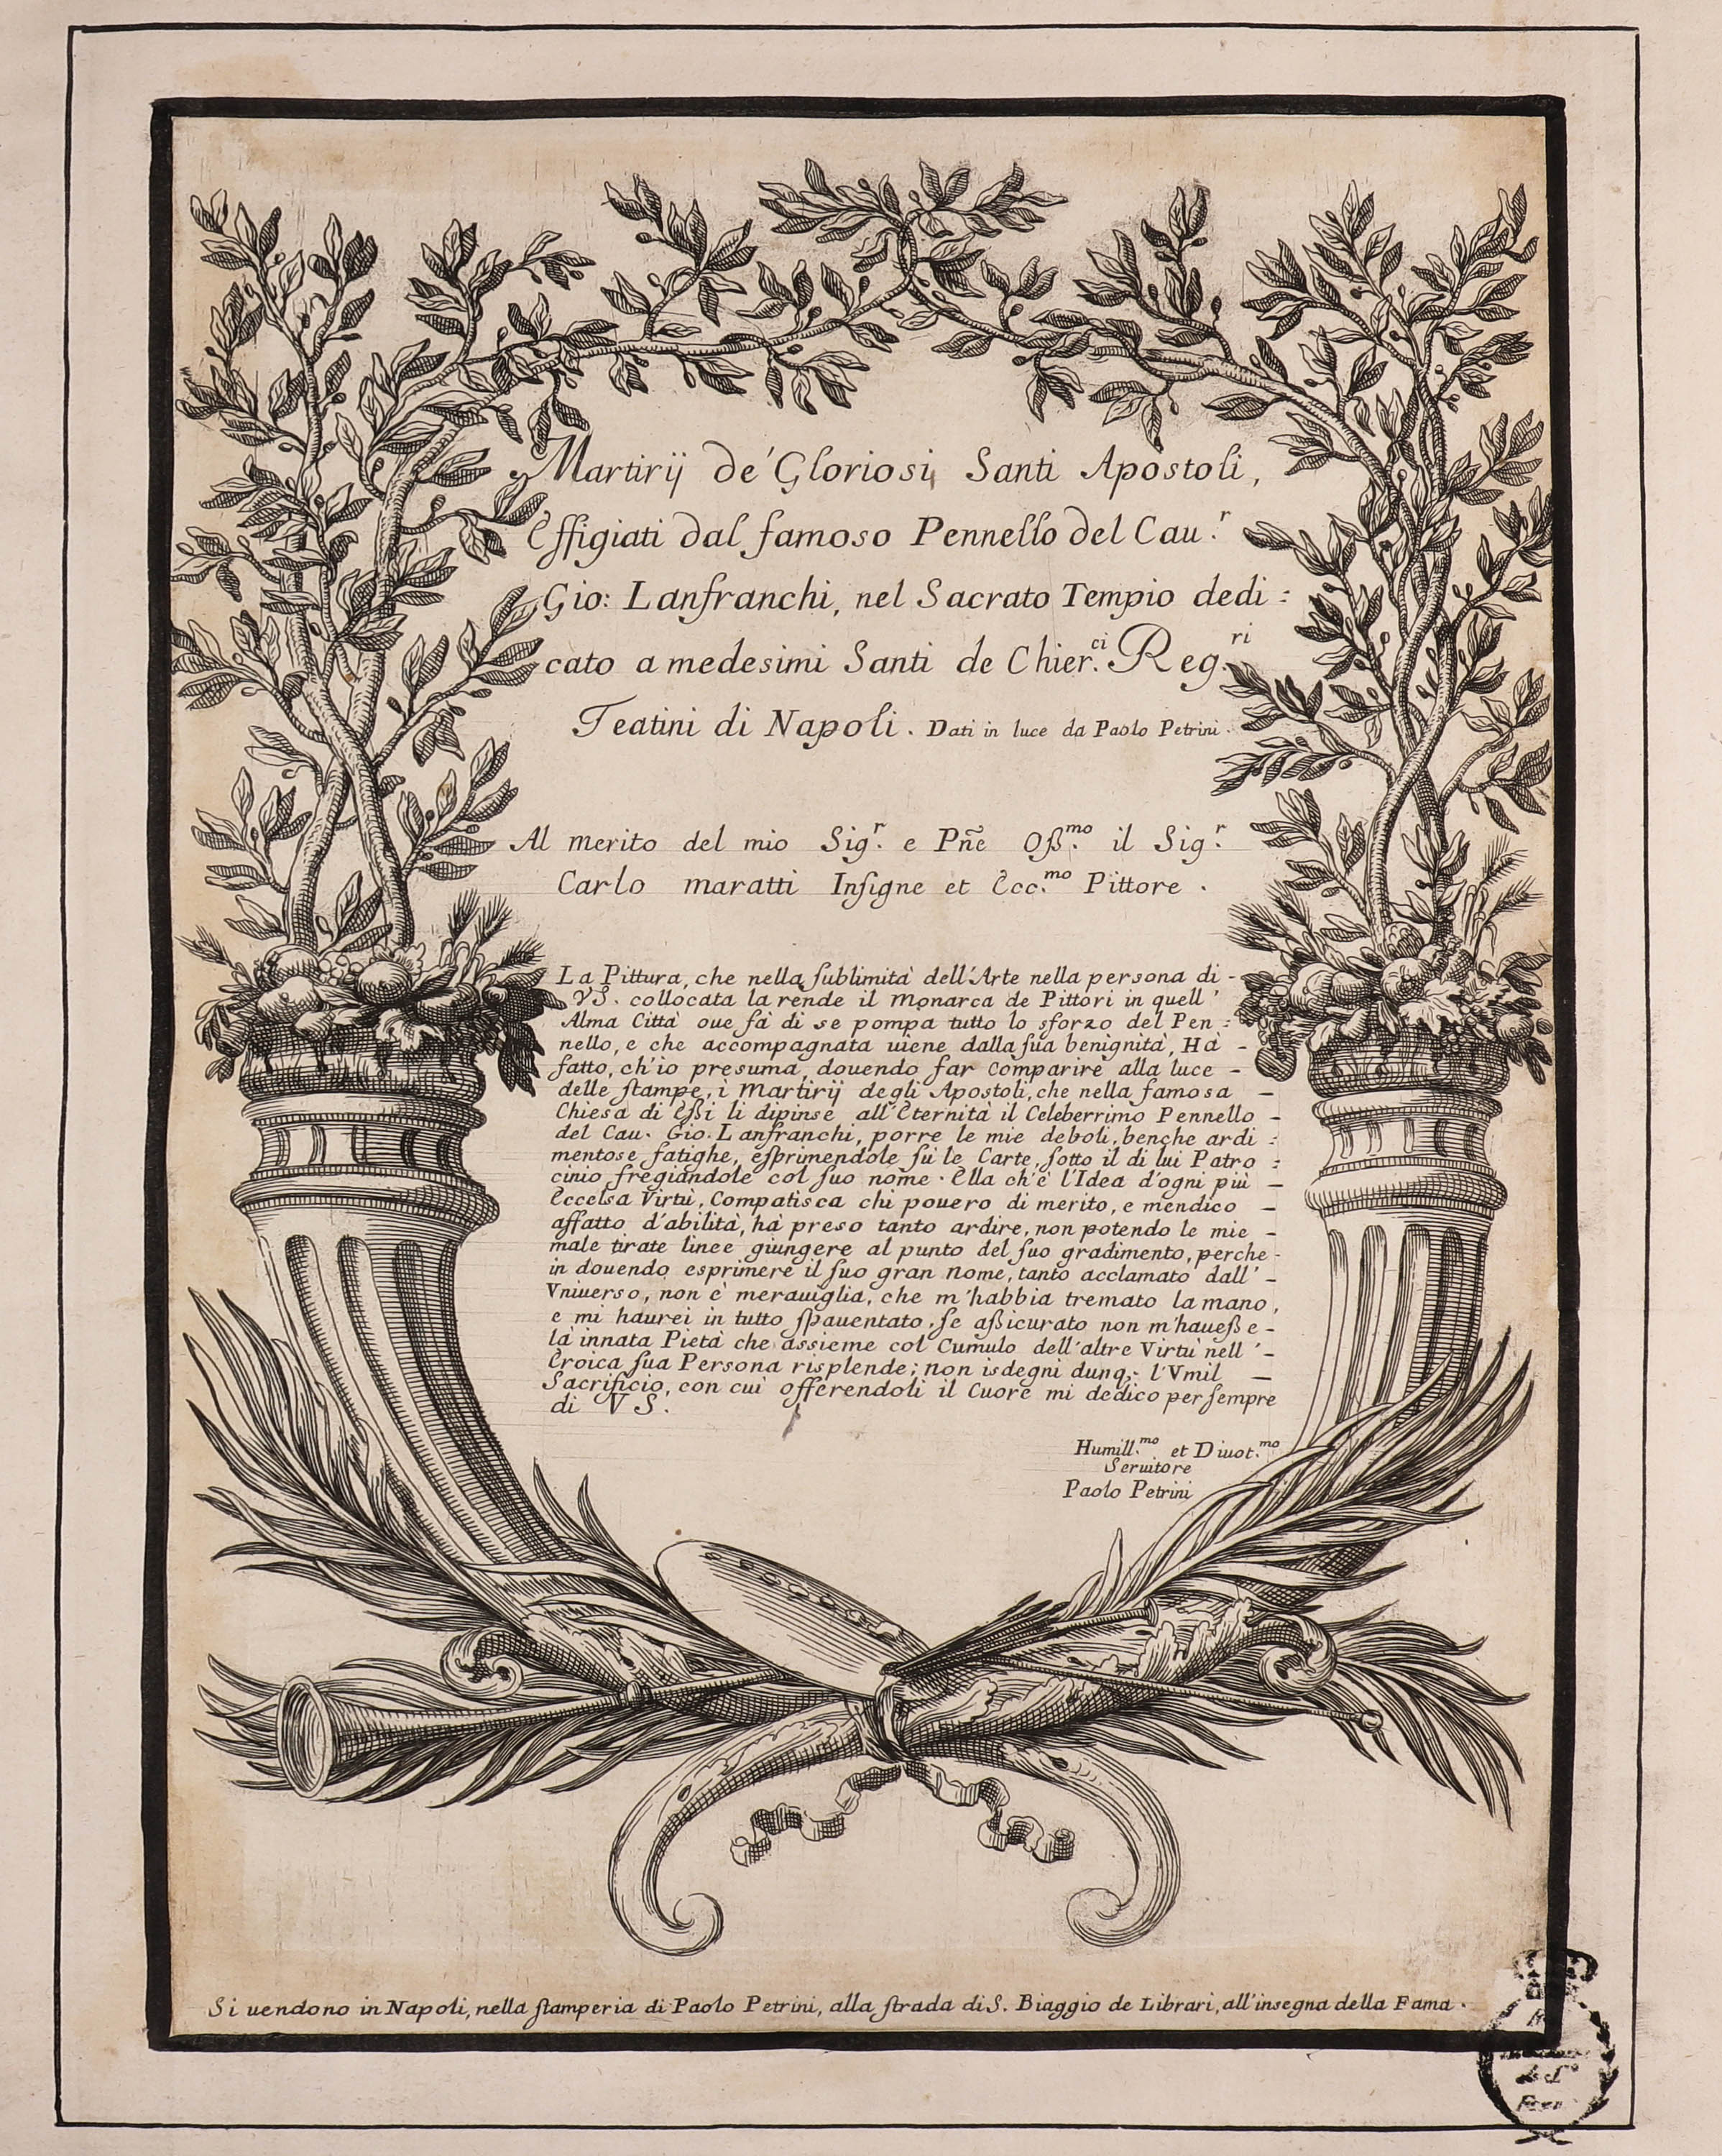 Martirij de' Gloriosi Santi Apostoli,
Effigiati dal famoso Pennello del Cau.r
Gio: Lanfranchi, nel Sacrato Tempio dedi:
cato a medesimi Santi de Chier.ci Reg.ri
Teatini di Napoli. Dati in luce da Paolo Petrini.
Al merito del mio Sig.r e Pñe Oß.mo il Sig.r
Carlo maratti Insigne et Ecc.mo Pittore.
La Pittura, che nella sublimità dell'Arte nella persona di-
VS. collocata la rende il Monarca de Pittori in quell'
Alma Città oue fà di se pompa tutto lo sforzo del Pen:
nello, e che accompagnata uiene dalla sua benignità, Hà-
fatto, ch'io presuma, douendo far Comparire alla luce-
delle stampe, i Martirij degli Apostoli, che nella famosa-
Chiesa di Eßi li dipinse all'Eternità il Celeberrimo Pennello-
del Cau. Gio. Lanfranchi, porre le mie deboli, benche ardi:
mentose fatighe, esprimendole sù le Carte, sotto il di lui Patro:
cinio fregiandole col suo nome. Ella ch'è l'Idea d'ogni più-
Eccelsa Virtù, Compatisca chi pouero di merito, e mendico-
affatto d'abilità, hà preso tanto ardire, non potendo le mie-
male tirate linee giungere al punto del suo gradimento, perche-
in douendo esprimere il suo gran Nome, tanto acclamato dall'-
Vniuerso, non è merauiglia, che m'habbia tremato la mano,
e mi haurei in tutto spauentato, se aßicurato non m'haueße-
la innata Pietà che assieme col Cumulo dell'altre Virtù nell'-
Eroica sua Persona risplende; non isdegni dunq; l'Vmil-
Sacrificio, con cui offerendoli il Cuore mi dedico per sempre
di VS.
Humill.mo et Diuot.mo
Seruitore
Paolo Petrini
Si uendono in Napoli, nella stamperia di Paolo Petrini, alla strada di S. Biaggio de Librari, all'insegna della Fama.